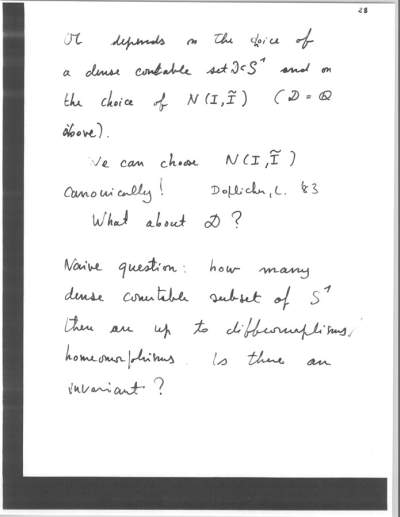 28
Ol depends on the choice of
a dense countable set D⊂S¹ and on
the choice of N(I,Ĩ) (D = Q
above).
We can choose N(I,Ĩ)
canonically! Doplicher, L. '83
What about D?
Naive question: how many
dense countable subset of S¹
there are up to diffeomorphisms,
homeomorphisms. Is there an
invariant?